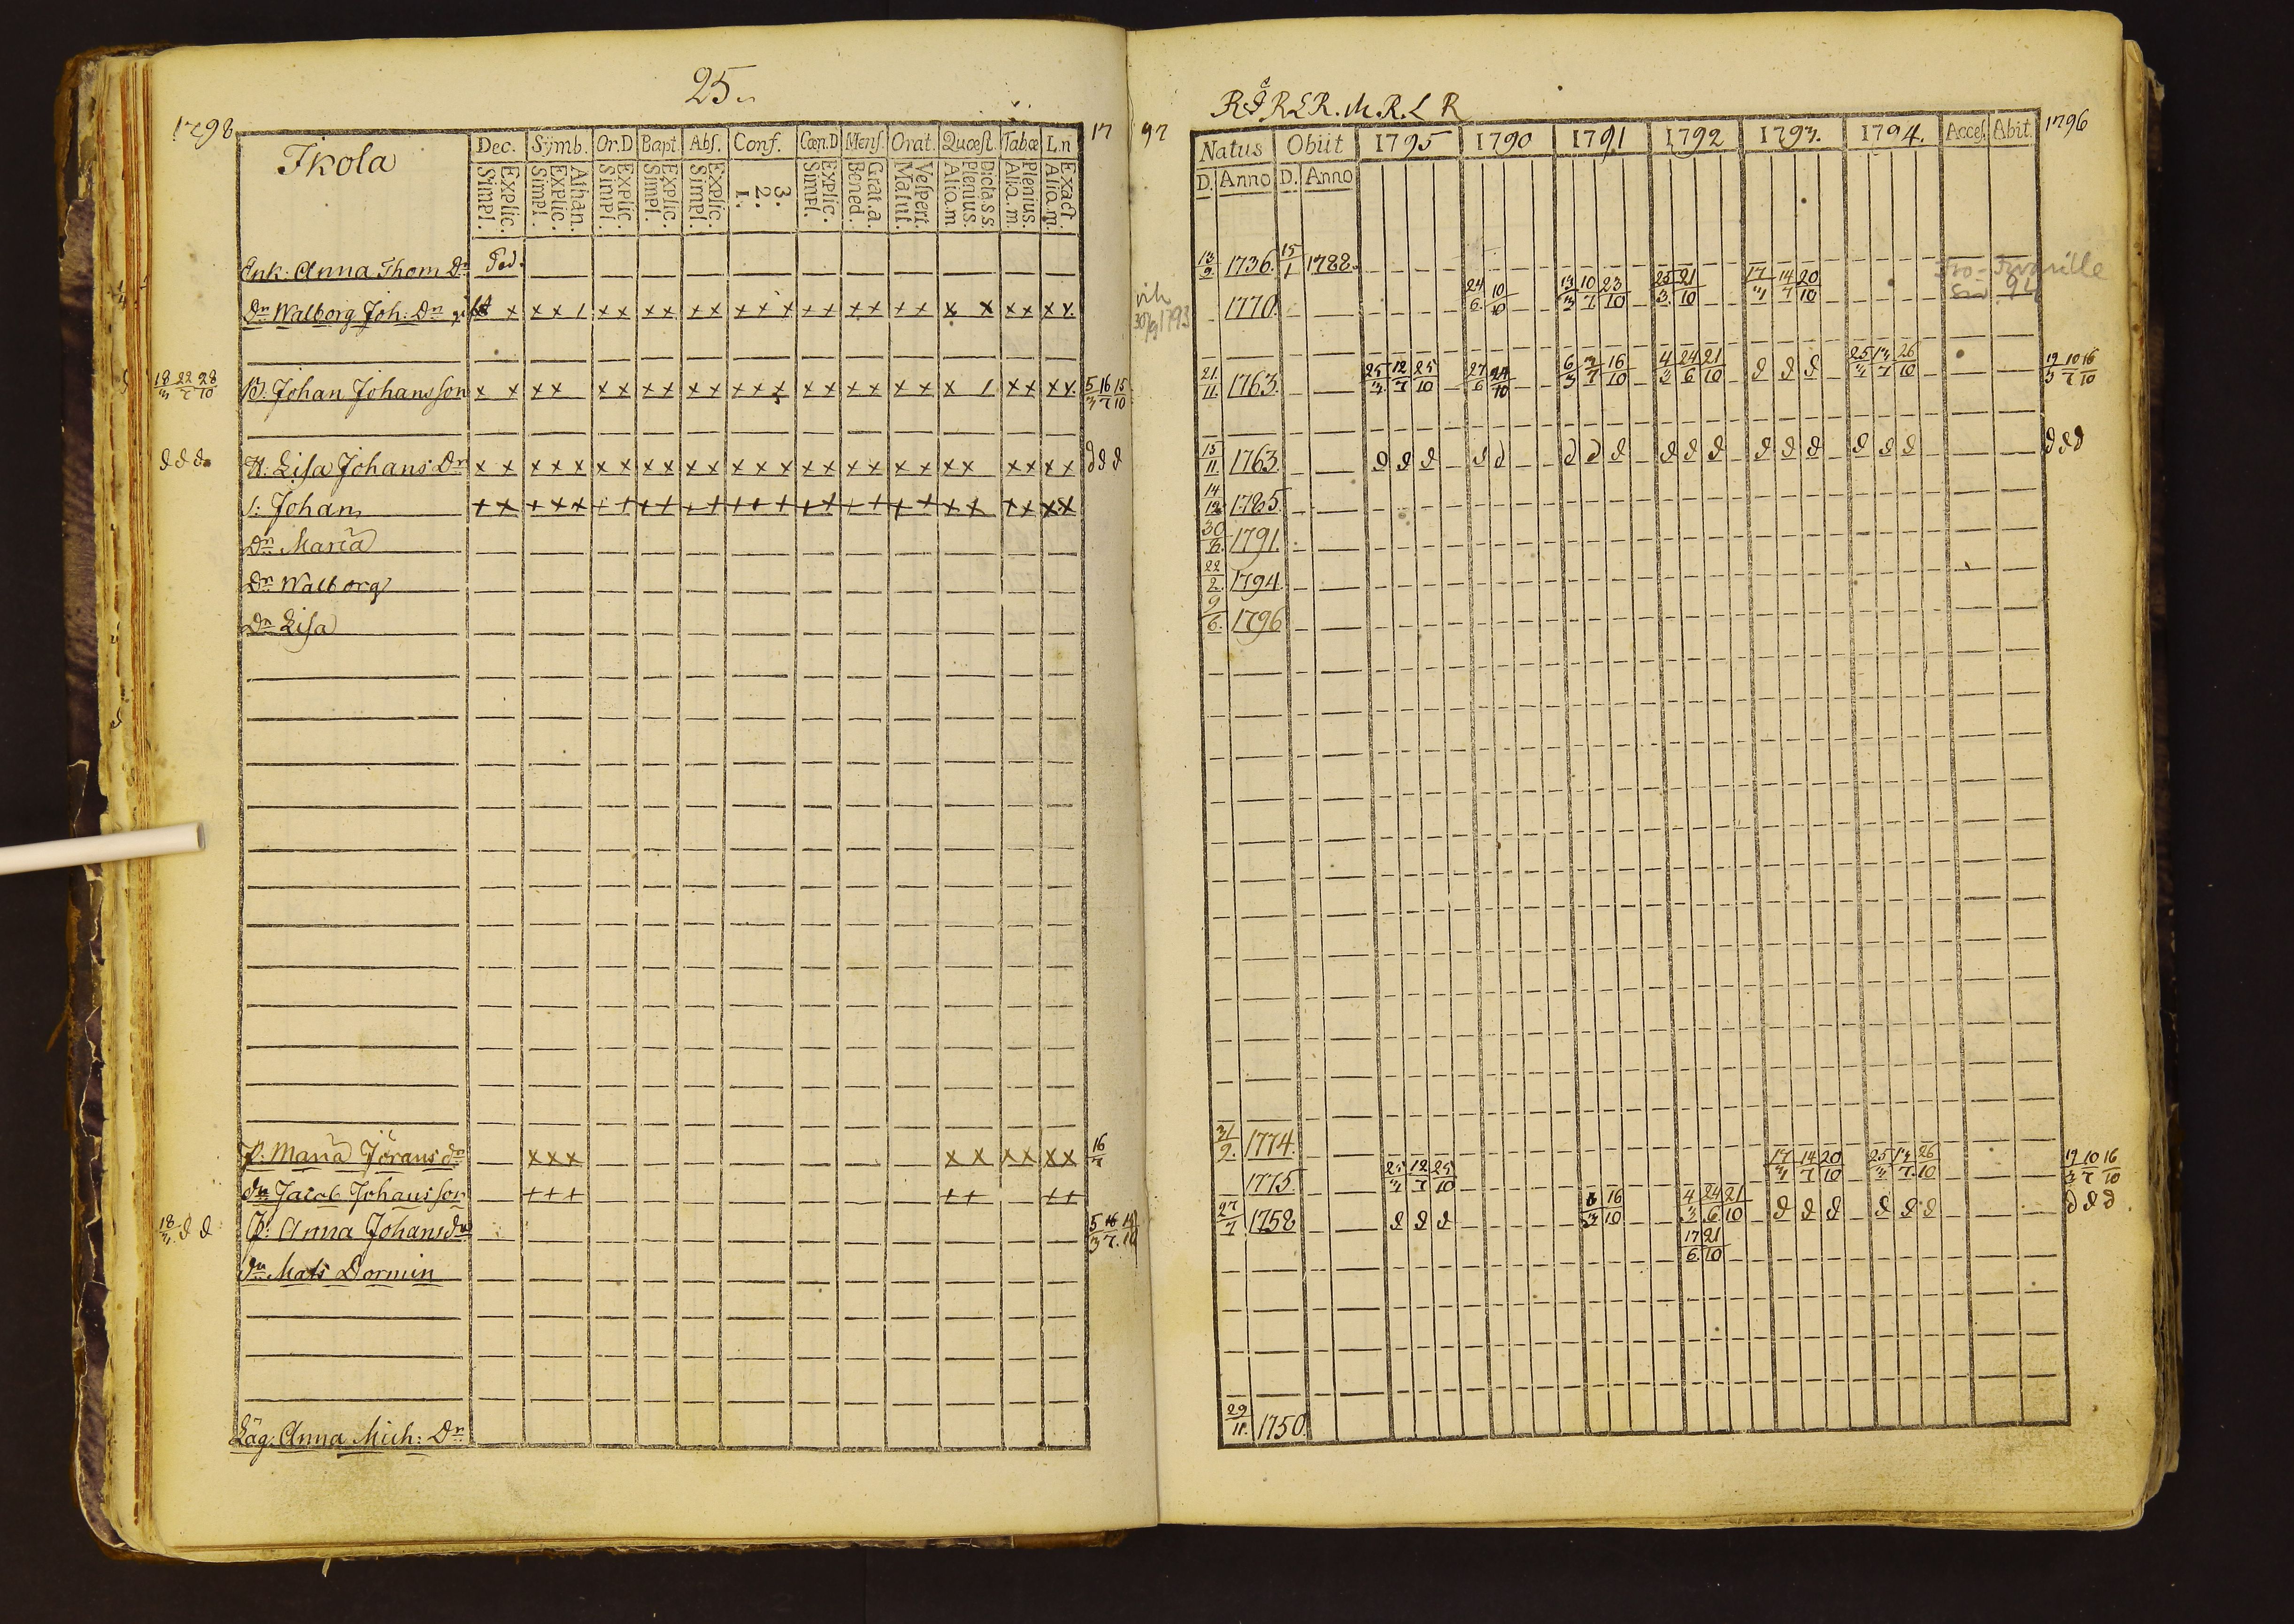 25.
1798
Ikola
Dec. Sÿmb. Or.D Bapt. Abs. Conf. Cœn.D Mens. Orat. Quœst. Tabœ L.n
Explic. Simpl. Athan. Explic. Simpl. Explic. Simpl. Explic. Simpl. Explic. Simpl. 3. 2. 1. Explic. Simpl. Grat.a. Bened. Vespert. Matut. Diclass. Plenius. Aliq.m Plenius. Aliq.m. Exact. Aliq.m.
17
Enk: Anna Thom Dr
Dr Walborg Joh: Dr x x x 1 x x x x x x x x x x x x x x x x x x x x x x x
18/3 22/7 28/10 B. Johan Johansson x x x x x x x x x x x x x x x x x x x x 1 x x x x 5/3 16/7 15/10
d d d H: Lisa Johans Dr x x x x x x x x x x x x x x x x x x x x x x x x x x d d d
S: Johan + x + x x + + + + + + + + + + + + + + + x x + x x x
Dr Maria
Dr Walborg
Dr Lisa
P. Maria Jörans dr x x x x x x x x x 16/7
Jacob Johansson + + + + + + +
18/3 d d P: Anna Johans dr
Mats Dormin
Anna Mich: Dr
97
R R L R. M. R. L R
Natus Obiit 1795 1790 1791 1792 1793. 1794. Acces. Abit. 1796
D. Anno D. Anno
13/9 1736. 15/1 1788.
30/9 1793
1770. 24/6 10/10 13/3 10/7 23/10 25/3 21/10 17/3 14/7 20/10 94
21/11. 1763. 25/3 12/7 25/10 27/6 24/10 6/3 3/7 16/10 4/3 24/6 21/10 d d d 25/3 13/7 26/10 19/3 10/7 16/10
15/11. 1763. d d d d d d d d d d d d d d d d d d d d
14/12 1785.
30/8. 1791.
22/2. 1794.
9/6. 1796
31/9. 1774.
1775. 25/3 12/7 25/10 17/3 14/7 20/10 25/3 13/7 26/10 19/3 10/7 16/10
27/7 1758 d d d 6/3 16/10 4/3 24/6 21/10 d d d d d d d d d
17/6 21/10
29/11. 1750.